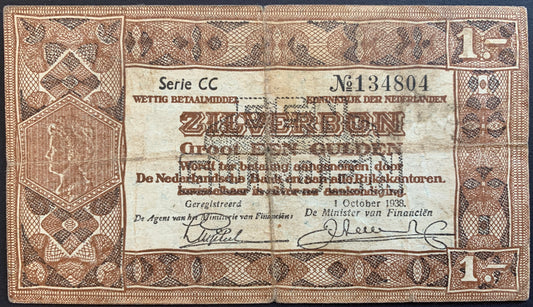 1.-
Serie CC № 134804
WETTIG BETAALMIDDEL KONINKRIJK DER NEDERLANDEN
EEN
ZILVERBON
Groot EEN GULDEN
Wordt ter betaling aangenomen door
De Nederlandsche Bank en aan alle Rijkskantoren.
Inwisselbaar in zilver na aankondiging.
Geregistreerd 1 October 1938.
De Agent van het Ministerie van Financiën: De Minister van Financiën
1.-